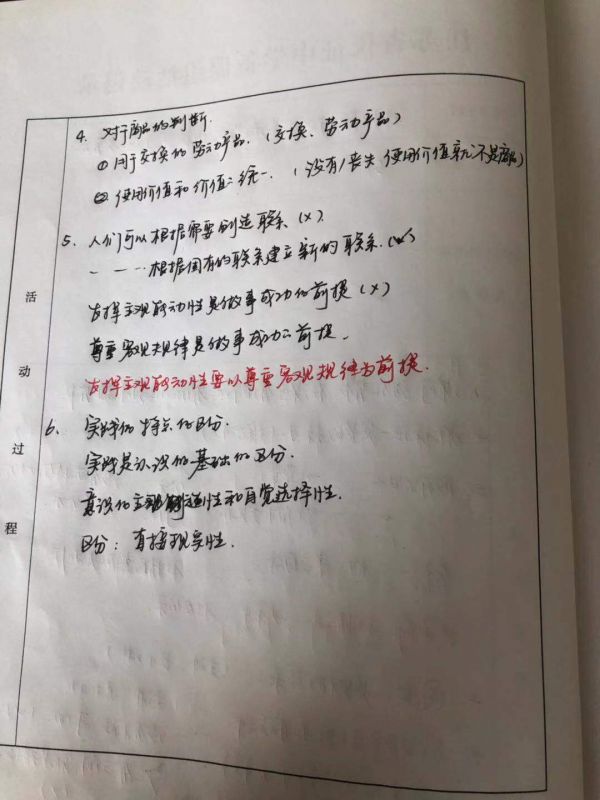 活动过程
4. 对于商品的判断.
① 用于交换的劳动产品.（交换、劳动产品）
② 使用价值和价值二统一.（没有/丧失使用价值就不是商品）
5. 人们可以根据需要创造联系（×）
- - - 根据固有的联系建立新的联系.（✓）
发挥主观能动性是做事成功的前提（×）
尊重客观规律是做事成功二前提.
发挥主观能动性要以尊重客观规律为前提.
6. 实践的特点的区分.
实践是认识的基础的区分.
意识的创造性和自觉选择性.
区分：直接现实性.